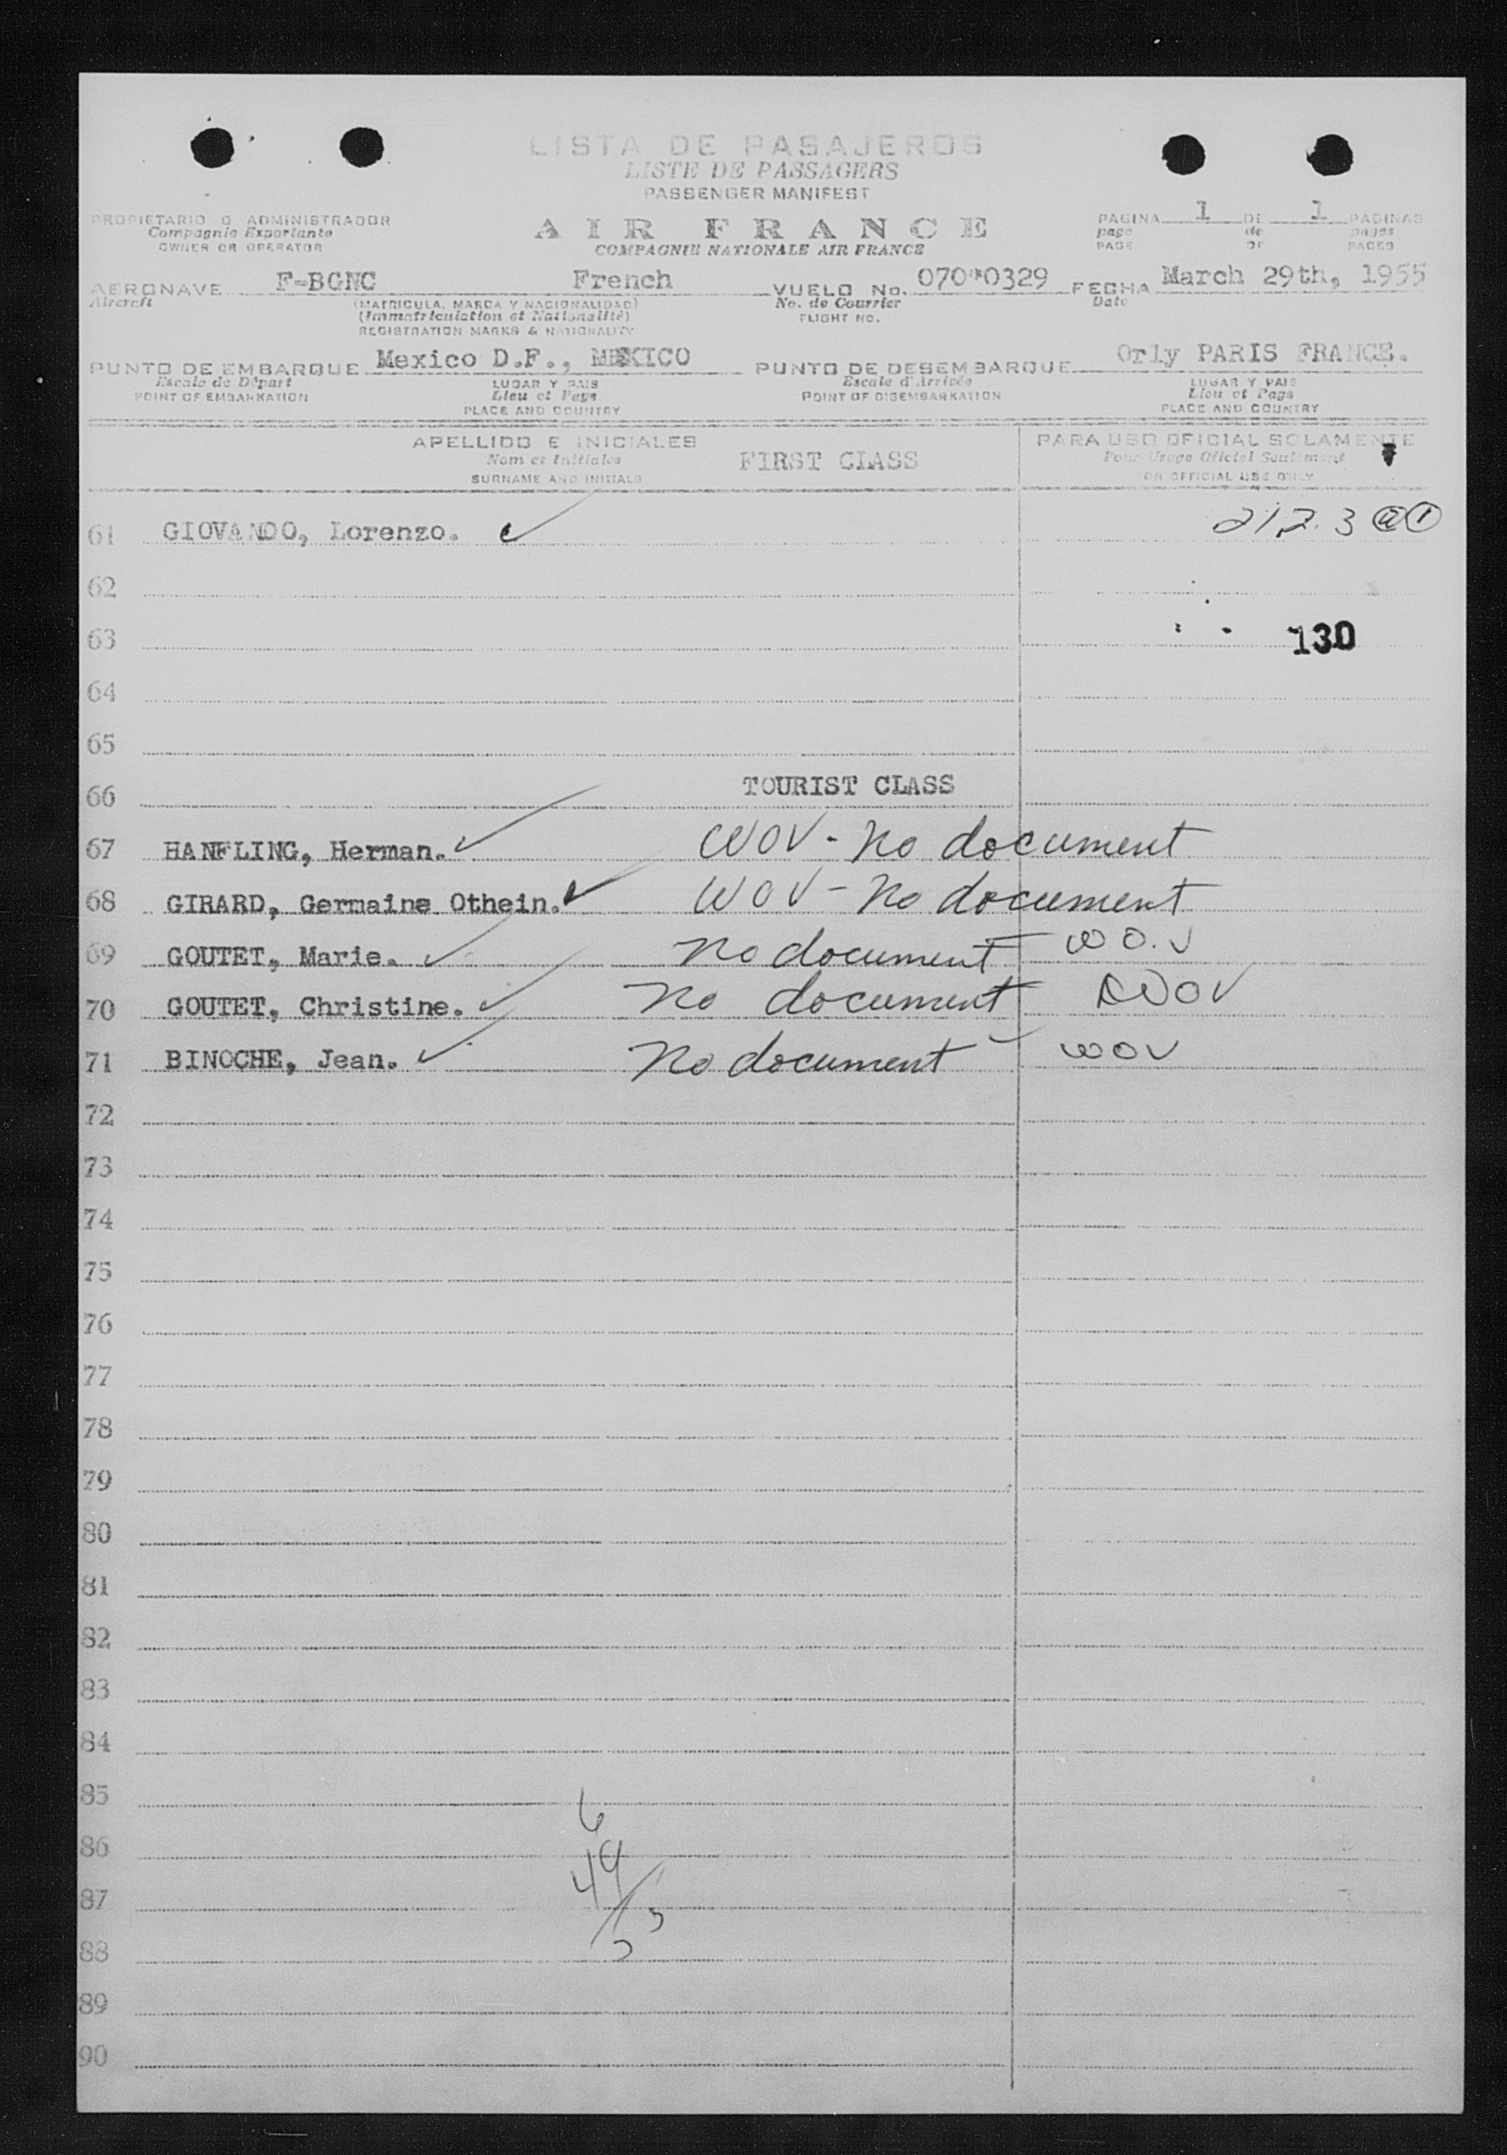 LISTA DE PASAJEROS
LISTE DE PASSAGERS
PASSENGER MANIFEST
PROPIETARIO O ADMINISTRADOR
Compagnie Exportante
OWNER OR OPERATOR
AIR FRANCE
COMPAGNIE NATIONALE AIR FRANCE
PAGINA 1 DE 1 PAGINAS
page de pages
PAGE OF PAGES
AERONAVE F-BGNC French VUELO No. 070*0329 FECHA March 29th, 1955
Aircraft (MATRICULA, MARCA Y NACIONALIDAD) No. de Courrier Date
(Immatriculation et Nationalité) FLIGHT NO.
REGISTRATION MARKS & NATIONALITY
PUNTO DE EMBARQUE Mexico D.F., MEXICO PUNTO DE DESEMBARQUE Orly PARIS FRANCE.
Escale de Départ LUGAR Y PAIS Escale d'Arrivée LUGAR Y PAIS
POINT OF EMBARKATION Lieu et Pays POINT OF DISEMBARKATION Lieu et Pays
PLACE AND COUNTRY PLACE AND COUNTRY
APELLIDO E INICIALES PARA USO OFICIAL SOLAMENTE
Nom et Initiales FIRST CLASS Pour Usage Oficiel Seulement
SURNAME AND INITIALS FOR OFFICIAL USE ONLY
61 GIOVANDO, Lorenzo. 212.3
62
63 130
64
65
66 TOURIST CLASS
67 HANFLING, Herman. WOV - No document
68 GIRARD, Germaine Othein. WOV - No document
69 GOUTET, Marie. No document WO.V
70 GOUTET, Christine. No document WOV
71 BINOCHE, Jean. No document WOV
72
73
74
75
76
77
78
79
80
81
82
83
84
85
6
86
49
87
88
89
90